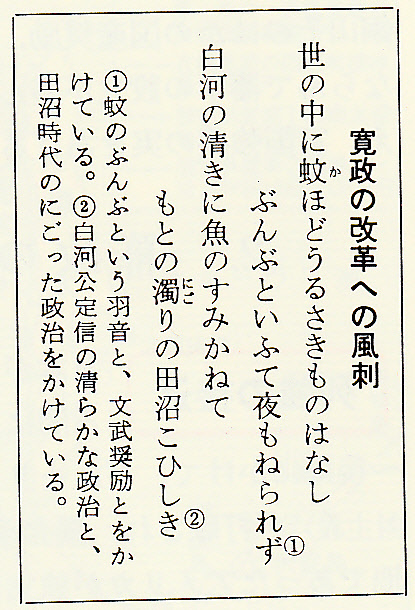 寛政の改革への風刺
世の中に蚊ほどうるさきものはなし
ぶんぶといふて夜もねられず①
白河の清きに魚のすみかねて
もとの濁りの田沼こひしき②
①蚊のぶんぶという羽音と、文武奨励とをか
けている。②白河公定信の清らかな政治と、
田沼時代のにごった政治をかけている。
か
にご